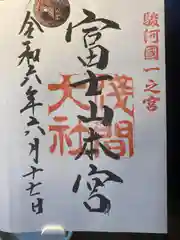 駿河國一之宮
富士山本宮
浅間
大社
令和六年六月十七日